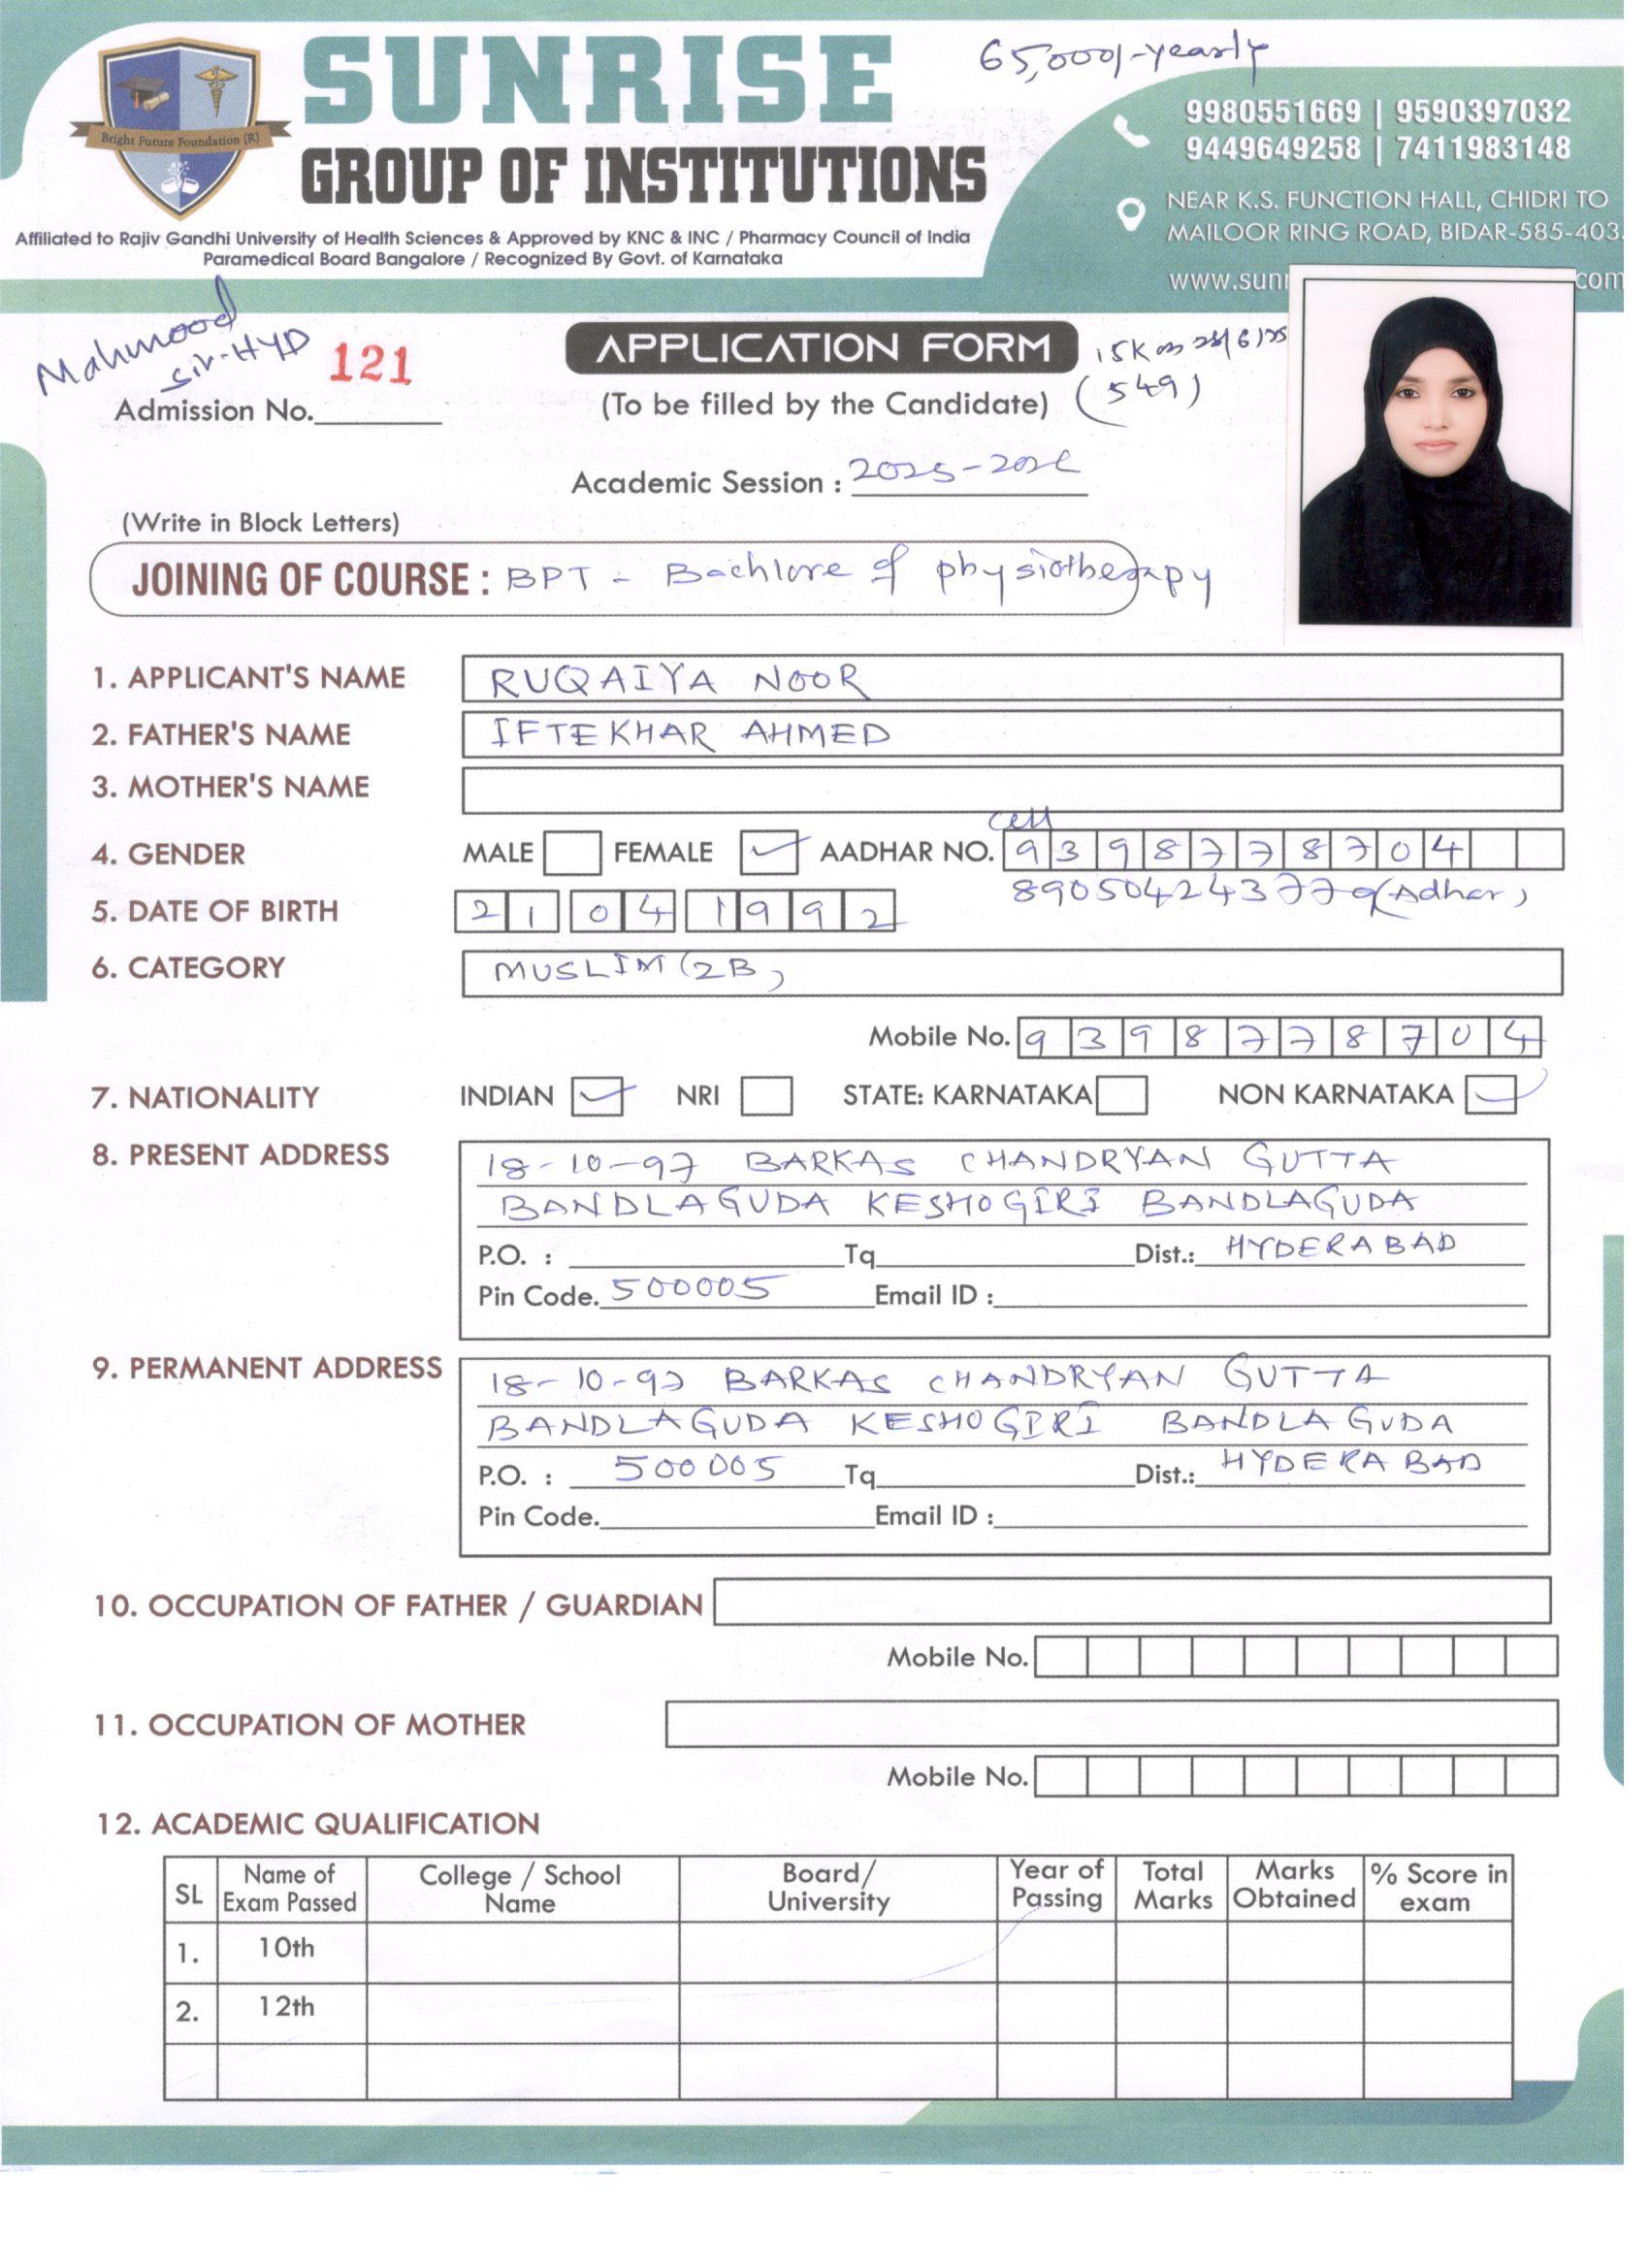 SUNRISE
GROUP OF INSTITUTIONS
Bright Future Foundation (R)
Affiliated to Rajiv Gandhi University of Health Sciences & Approved by KNC & INC / Pharmacy Council of India
Paramedical Board Bangalore / Recognized By Govt. of Karnataka
65,000/-yearly
9980551669 | 9590397032
9449649258 | 7411983148
NEAR K.S. FUNCTION HALL, CHIDRI TO
MAILOOR RING ROAD, BIDAR-585-403.
www.sun com
Mahmood
Sir-HYD
121
APPLICATION FORM
15K on /6/25
Admission No.
(To be filled by the Candidate) (549)
Academic Session : 2025-202
(Write in Block Letters)
JOINING OF COURSE : BPT - Bachlore of physiotherapy
1. APPLICANT'S NAME RUQAIYA NOOR
2. FATHER'S NAME IFTEKHAR AHMED
3. MOTHER'S NAME
cell
4. GENDER MALE FEMALE AADHAR NO. 9398778704
890504243779 (Adhar)
5. DATE OF BIRTH 21 04 1992
6. CATEGORY MUSLIM (2B)
Mobile No. 9398778704
7. NATIONALITY INDIAN NRI STATE: KARNATAKA NON KARNATAKA
8. PRESENT ADDRESS 18-10-97 BARKAS CHANDRYAN GUTTA
BANDLAGUDA KESHOGIRI BANDLAGUDA
P.O. : Tq Dist.: HYDERABAD
Pin Code. 500005 Email ID :
9. PERMANENT ADDRESS 18-10-97 BARKAS CHANDRYAN GUTTA
BANDLAGUDA KESHOGIRI BANDLAGUDA
P.O. : 500005 Tq Dist.: HYDERABAD
Pin Code. Email ID :
10. OCCUPATION OF FATHER / GUARDIAN
Mobile No.
11. OCCUPATION OF MOTHER
Mobile No.
12. ACADEMIC QUALIFICATION
SL Name of Exam Passed College / School Name Board/ University Year of Passing Total Marks Marks Obtained % Score in exam
1. 10th
2. 12th